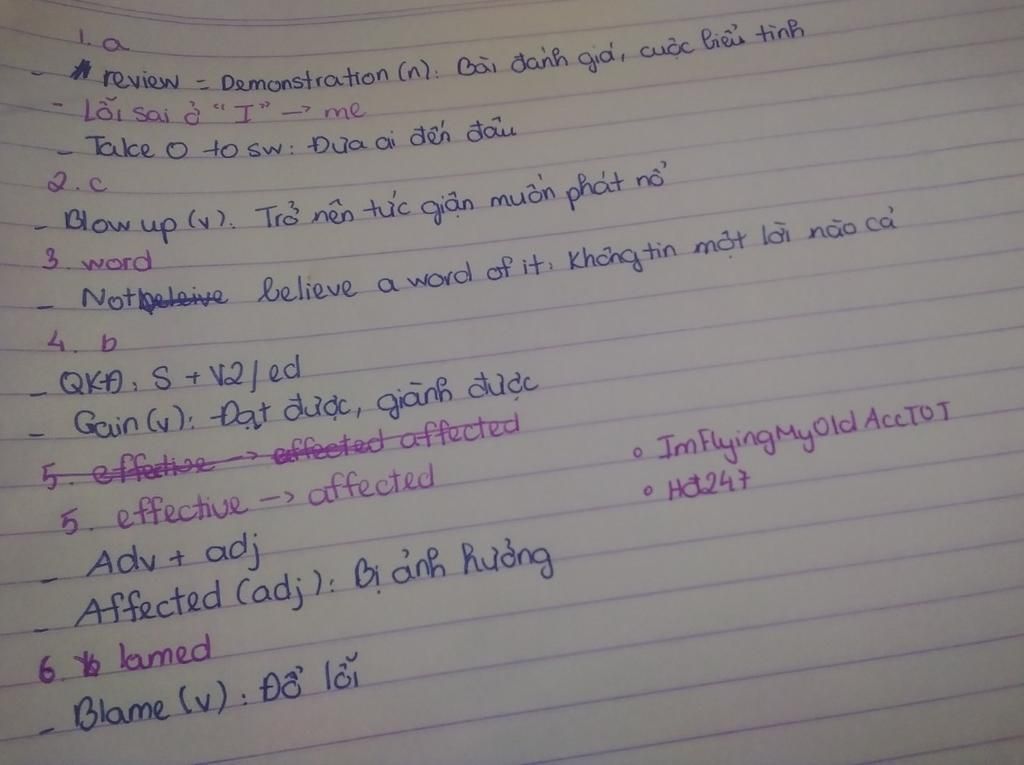 1. a
- review = Demonstration (n): Bài đánh giá, cuộc biểu tình
- Lỗi sai ở "I" → me
- Take O to sw: Đưa ai đến đâu
2. c
- Blow up (v): Trở nên tức giận muốn phát nổ
3. word
- Not beleive believe a word of it: Không tin một lời nào cả
4. b
- QKĐ: S + V2/ed
- Gain (v): Đạt được, giành được
5. effective → effected affected
5. effective → affected
- Adv + adj
- Affected (adj): Bị ảnh hưởng
6. lamed
- Blame (v): Đổ lỗi
o ImFlyingMyOldAccTOT
o Hd247